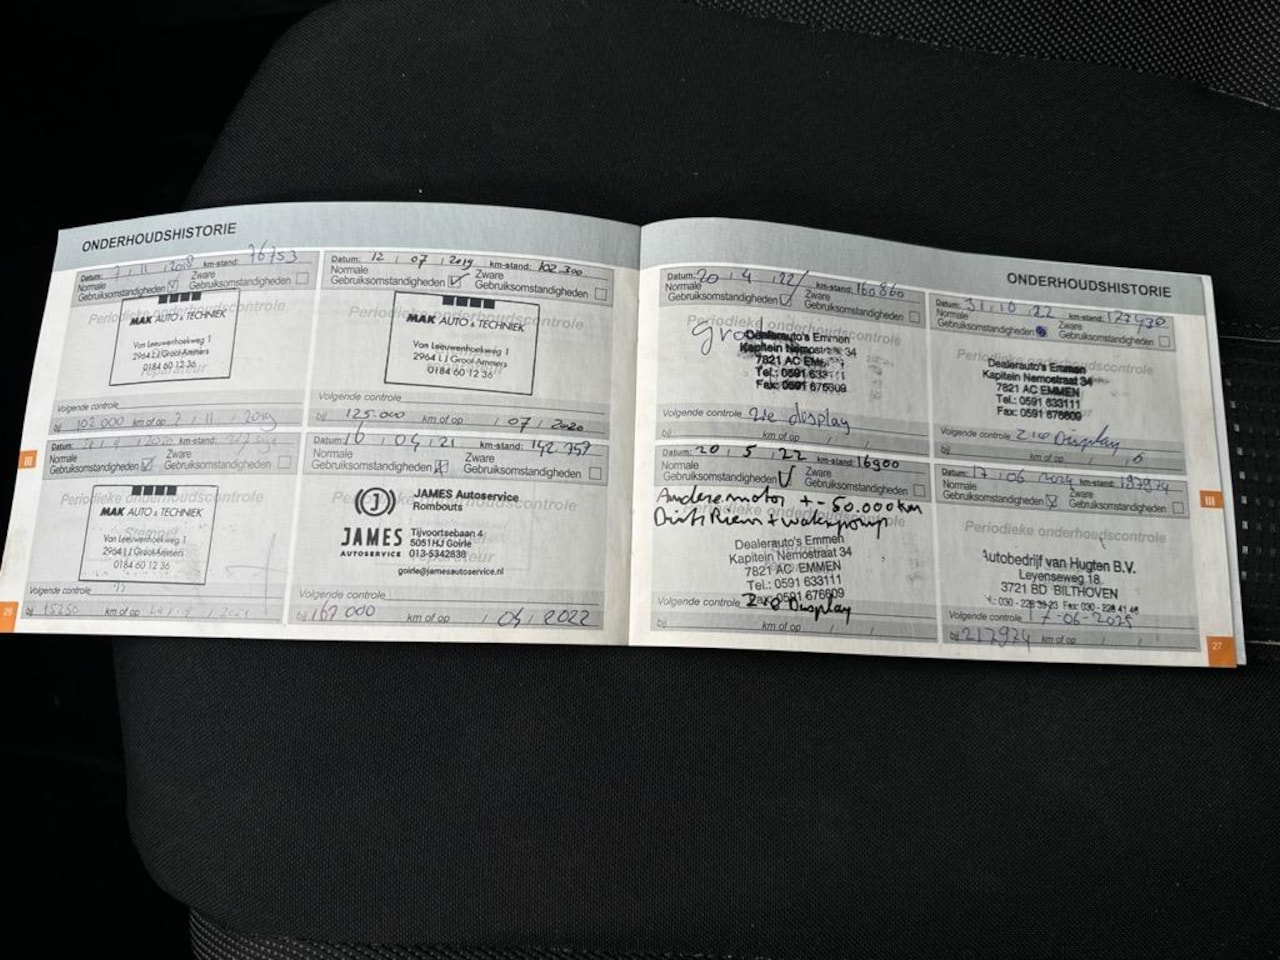 ONDERHOUDSHISTORIE
Datum: 7 , 11 , 2018 km-stand: 76753
Normale Gebruiksomstandigheden Zware Gebruiksomstandigheden
Periodieke onderhoudscontrole
MAK AUTO & TECHNIEK
Von Leeuwenhoekweg 1
2964 LJ Groot-Ammers
0184 60 12 36
Volgende controle
bij 102000 km of op 7 , 11 , 2019
Datum: 12 , 07 , 2019 km-stand: 102.300
Normale Gebruiksomstandigheden Zware Gebruiksomstandigheden
Periodieke onderhoudscontrole
MAK AUTO & TECHNIEK
Von Leeuwenhoekweg 1
2964 LJ Groot-Ammers
0184 60 12 36
Volgende controle
bij 125.000 km of op , 07 , 2020
Datum: km-stand:
Normale Gebruiksomstandigheden Zware Gebruiksomstandigheden
Periodieke onderhoudscontrole
Stempel
MAK AUTO & TECHNIEK
Von Leeuwenhoekweg 1
2964 LJ Groot-Ammers
0184 60 12 36
Volgende controle
bij km of op
Datum: 16 , 04 , 21 km-stand: 142.757
Normale Gebruiksomstandigheden Zware Gebruiksomstandigheden
JAMES Autoservice
Rombouts
JAMES
AUTOSERVICE
Tijvoortsebaan 4
5051HJ Goirle
013-5342838
goirle@jamesautoservice.nl
Volgende controle
bij 167000 km of op , 04 , 2022
26
III
ONDERHOUDSHISTORIE
Datum: 20 , 4 , 22 km-stand: 160860
Normale Gebruiksomstandigheden Zware Gebruiksomstandigheden
Periodieke onderhoudscontrole
Dealerauto's Emmen
Kapitein Nemostraat 34
7821 AC Emmen
Tel.: 0591 633111
Fax: 0591 676609
Volgende controle zie display
bij km of op , ,
Datum: 31 , 10 , 22 km-stand: 127430
Normale Gebruiksomstandigheden Zware Gebruiksomstandigheden
Periodieke onderhoudscontrole
Dealerauto's Emmen
Kapitein Nemostraat 34
7821 AC EMMEN
Tel.: 0591 633111
Fax: 0591 676609
Volgende controle Zie Display
bij km of op , ,
Datum: 20 , 5 , 22 km-stand: 16900
Normale Gebruiksomstandigheden Zware Gebruiksomstandigheden
Andere motor +- 50.000 km
Distri Riem + waterpomp
Periodieke onderhoudscontrole
Dealerauto's Emmen
Kapitein Nemostraat 34
7821 AC EMMEN
Tel.: 0591 633111
Fax: 0591 676609
Volgende controle Zie Display
bij km of op , ,
Datum: 17 , 06 , 2024 km-stand: 187974
Normale Gebruiksomstandigheden Zware Gebruiksomstandigheden
Periodieke onderhoudscontrole
Autobedrijf van Hugten B.V.
Leyenseweg 18
3721 BD BILTHOVEN
T: 030 - 228 39 23 Fax: 030 - 228 41 48
Volgende controle 17-06-2025
bij 217974 km of op , ,
III
27